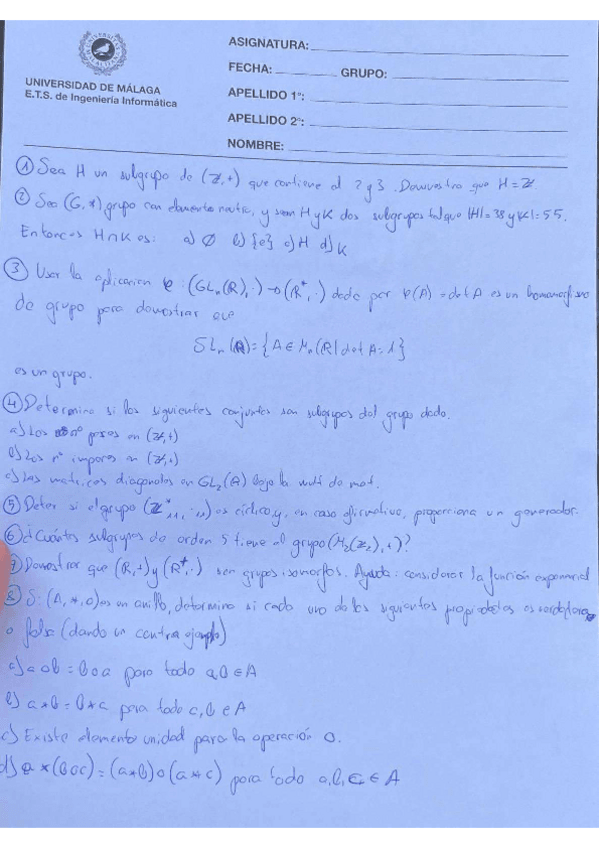 UNIVERSIDAD DE MÁLAGA
E.T.S. de Ingeniería Informática
ASIGNATURA:
FECHA: GRUPO:
APELLIDO 1º:
APELLIDO 2º:
NOMBRE:
① Sea H un subgrupo de (ℤ,+) que contiene al 2 y 3. Demuestra que H=ℤ.
② Sea (G,*) grupo con elemento neutro, y sean H y K dos subgrupos tal que |H|=38 y |K|=55.
Entonces H∩K es: a) ∅ b) {e} c) H d) K
③ Usar la aplicacion φ: (GLn(R),·)→(R*,·) dada por φ(A)=det A es un homomorfismo
de grupo para demostrar que
SLn(R)={A∈Mn(R| det A=1}
es un grupo.
④ Determina si los siguientes conjuntos son subgrupos del grupo dado.
a) Los nº pares en (ℤ,+)
b) Los nº impares en (ℤ,+)
c) Las matrices diagonales en GL2(A) bajo la mult de mat.
⑤ Deter si el grupo (ℤ*11, ·11) es cíclico y, en caso afirmativo, proporciona un generador.
⑥ ¿Cuántos subgrupos de orden 5 tiene el grupo (M2(ℤ2),+)?
⑦ Demostrar que (R,+) y (R+,·) son grupos isomorfos. Ayuda: considerar la función exponencial
⑧ Si (A,*,o) es un anillo, determina si cada uno de las siguientes propiedades es verdadera
o falsa (dando un contra ejemplo)
a) a o b = b o a para todo a,b ∈ A
b) a * b = b * a para todo a,b ∈ A
c) Existe elemento unidad para la operación o.
d) a * (b o c) = (a * b) o (a * c) para todo a,b,c ∈ A